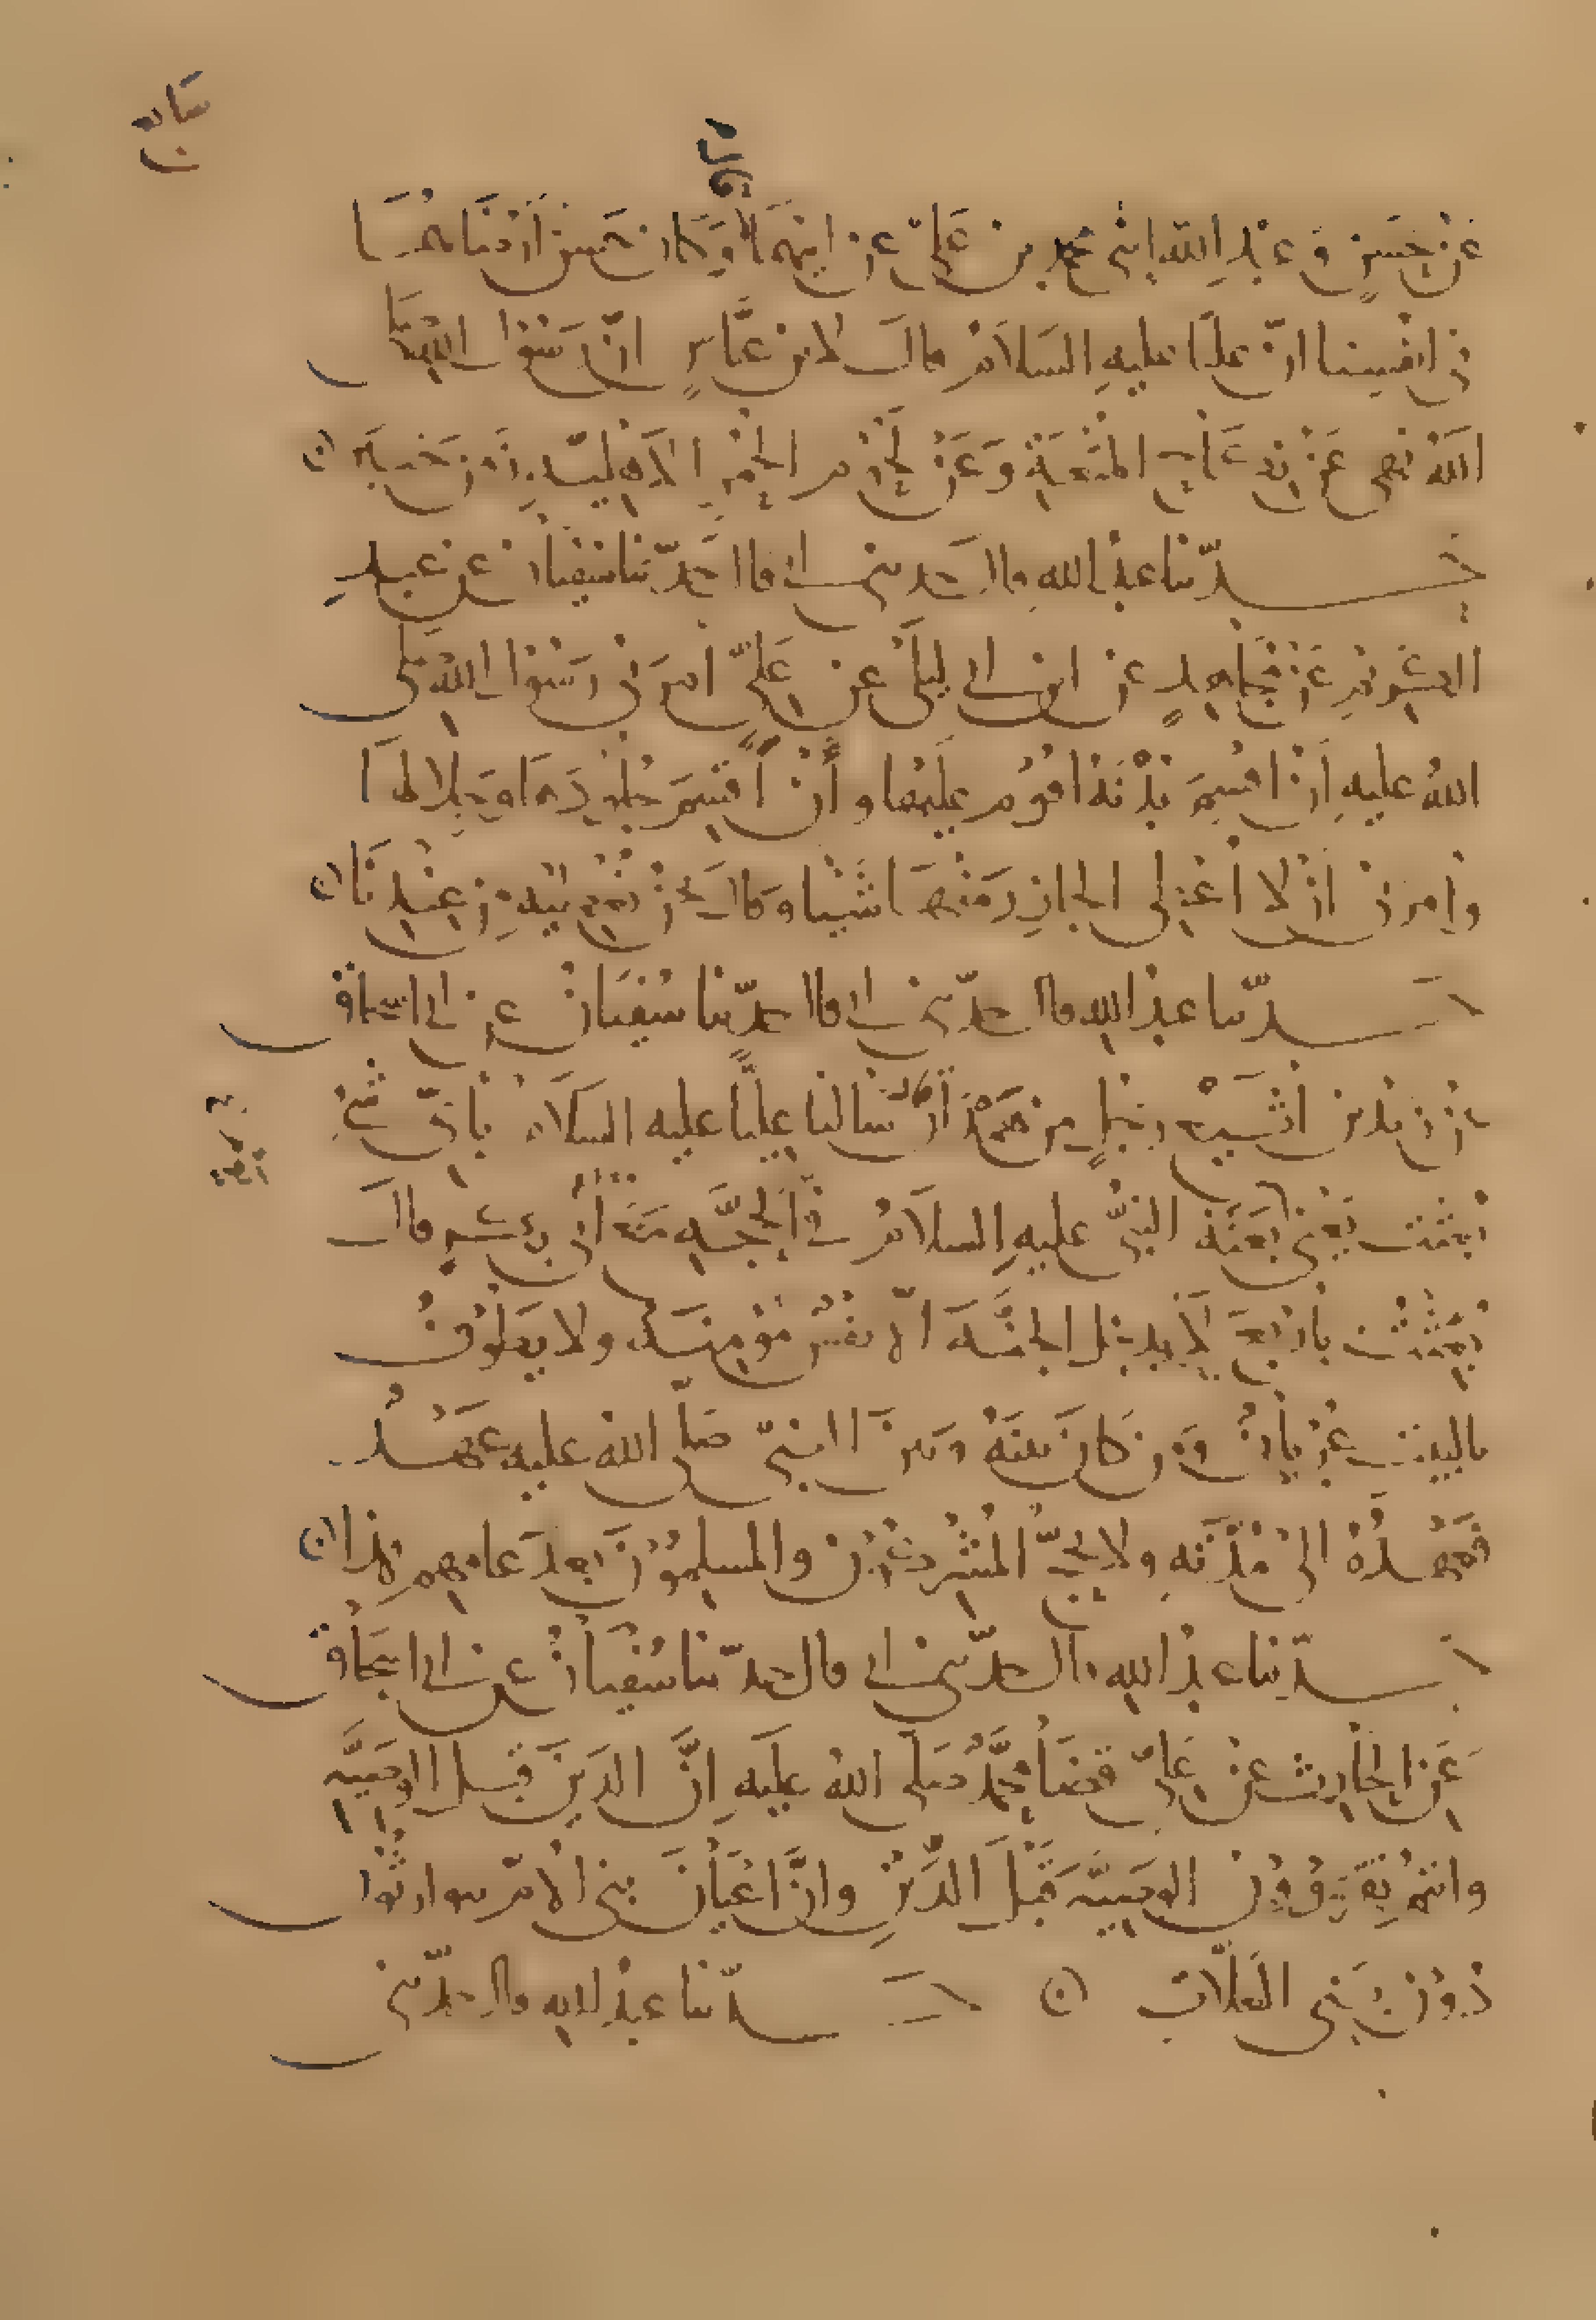 عن حسن وعبد الله ابنى محمد بن علىّ عن ابيهما وكان حسن ارضاهما
فى انفسنا انّ عليّا عليه السلام قال لابن عباسٍ انّ رسول الله صلى
الله نهى عن نكاح المتعة وعن لحوم الحمر الاهلية زمن خيبر
حدّثنا عبد الله قال حدثنى ابى قال حدّثنا سفيان عن عبد
الكريم عن مجاهدٍ عن ابن ابى ليلى عن علىّ امرنى رسول الله صلى
الله عليه أن اقسم بدنه اقوم عليها وأن أقسم جلودها وجلالها
وامرنى ان لا أعطى الجازر منها شيئا وقال نحن نعطيه من عندنا
حدّثنا عبد الله قال حدّثنى ابى قال حدّثنا سفيان عن ابى اسحاق
عن زيد بن اثيع رجلٍ من همدان سالنا عليّا عليه السلام باىّ شىء
بعثت يعنى بعثه النبىّ عليه السلام فى الحجّه مع أبى بكر قال
بعثت باربع لا يدخل الجنّة الّا نفس مؤمنة ولا يطوف
بالبيت عريان ومن كان بينه وبين النبىّ صلّى الله عليه عهد
فعهده الى مدّته ولا يحجّ المشركون والمسلمون بعد عامهم هذا
حدّثنا عبد الله قال حدّثنى ابى قال حدّثنا سفيان عن ابى اسحاق
عن الحارث عن علىّ قضا محمّد صلّى الله عليه انّ الدين قبل الوصيّه
وانتم تقرؤون الوصيّه قبل الدّين وانّ اعيان بنى الامّ يتوارثوا
دون بنى العلّات حدّثنا عبد الله قال حدّثنى